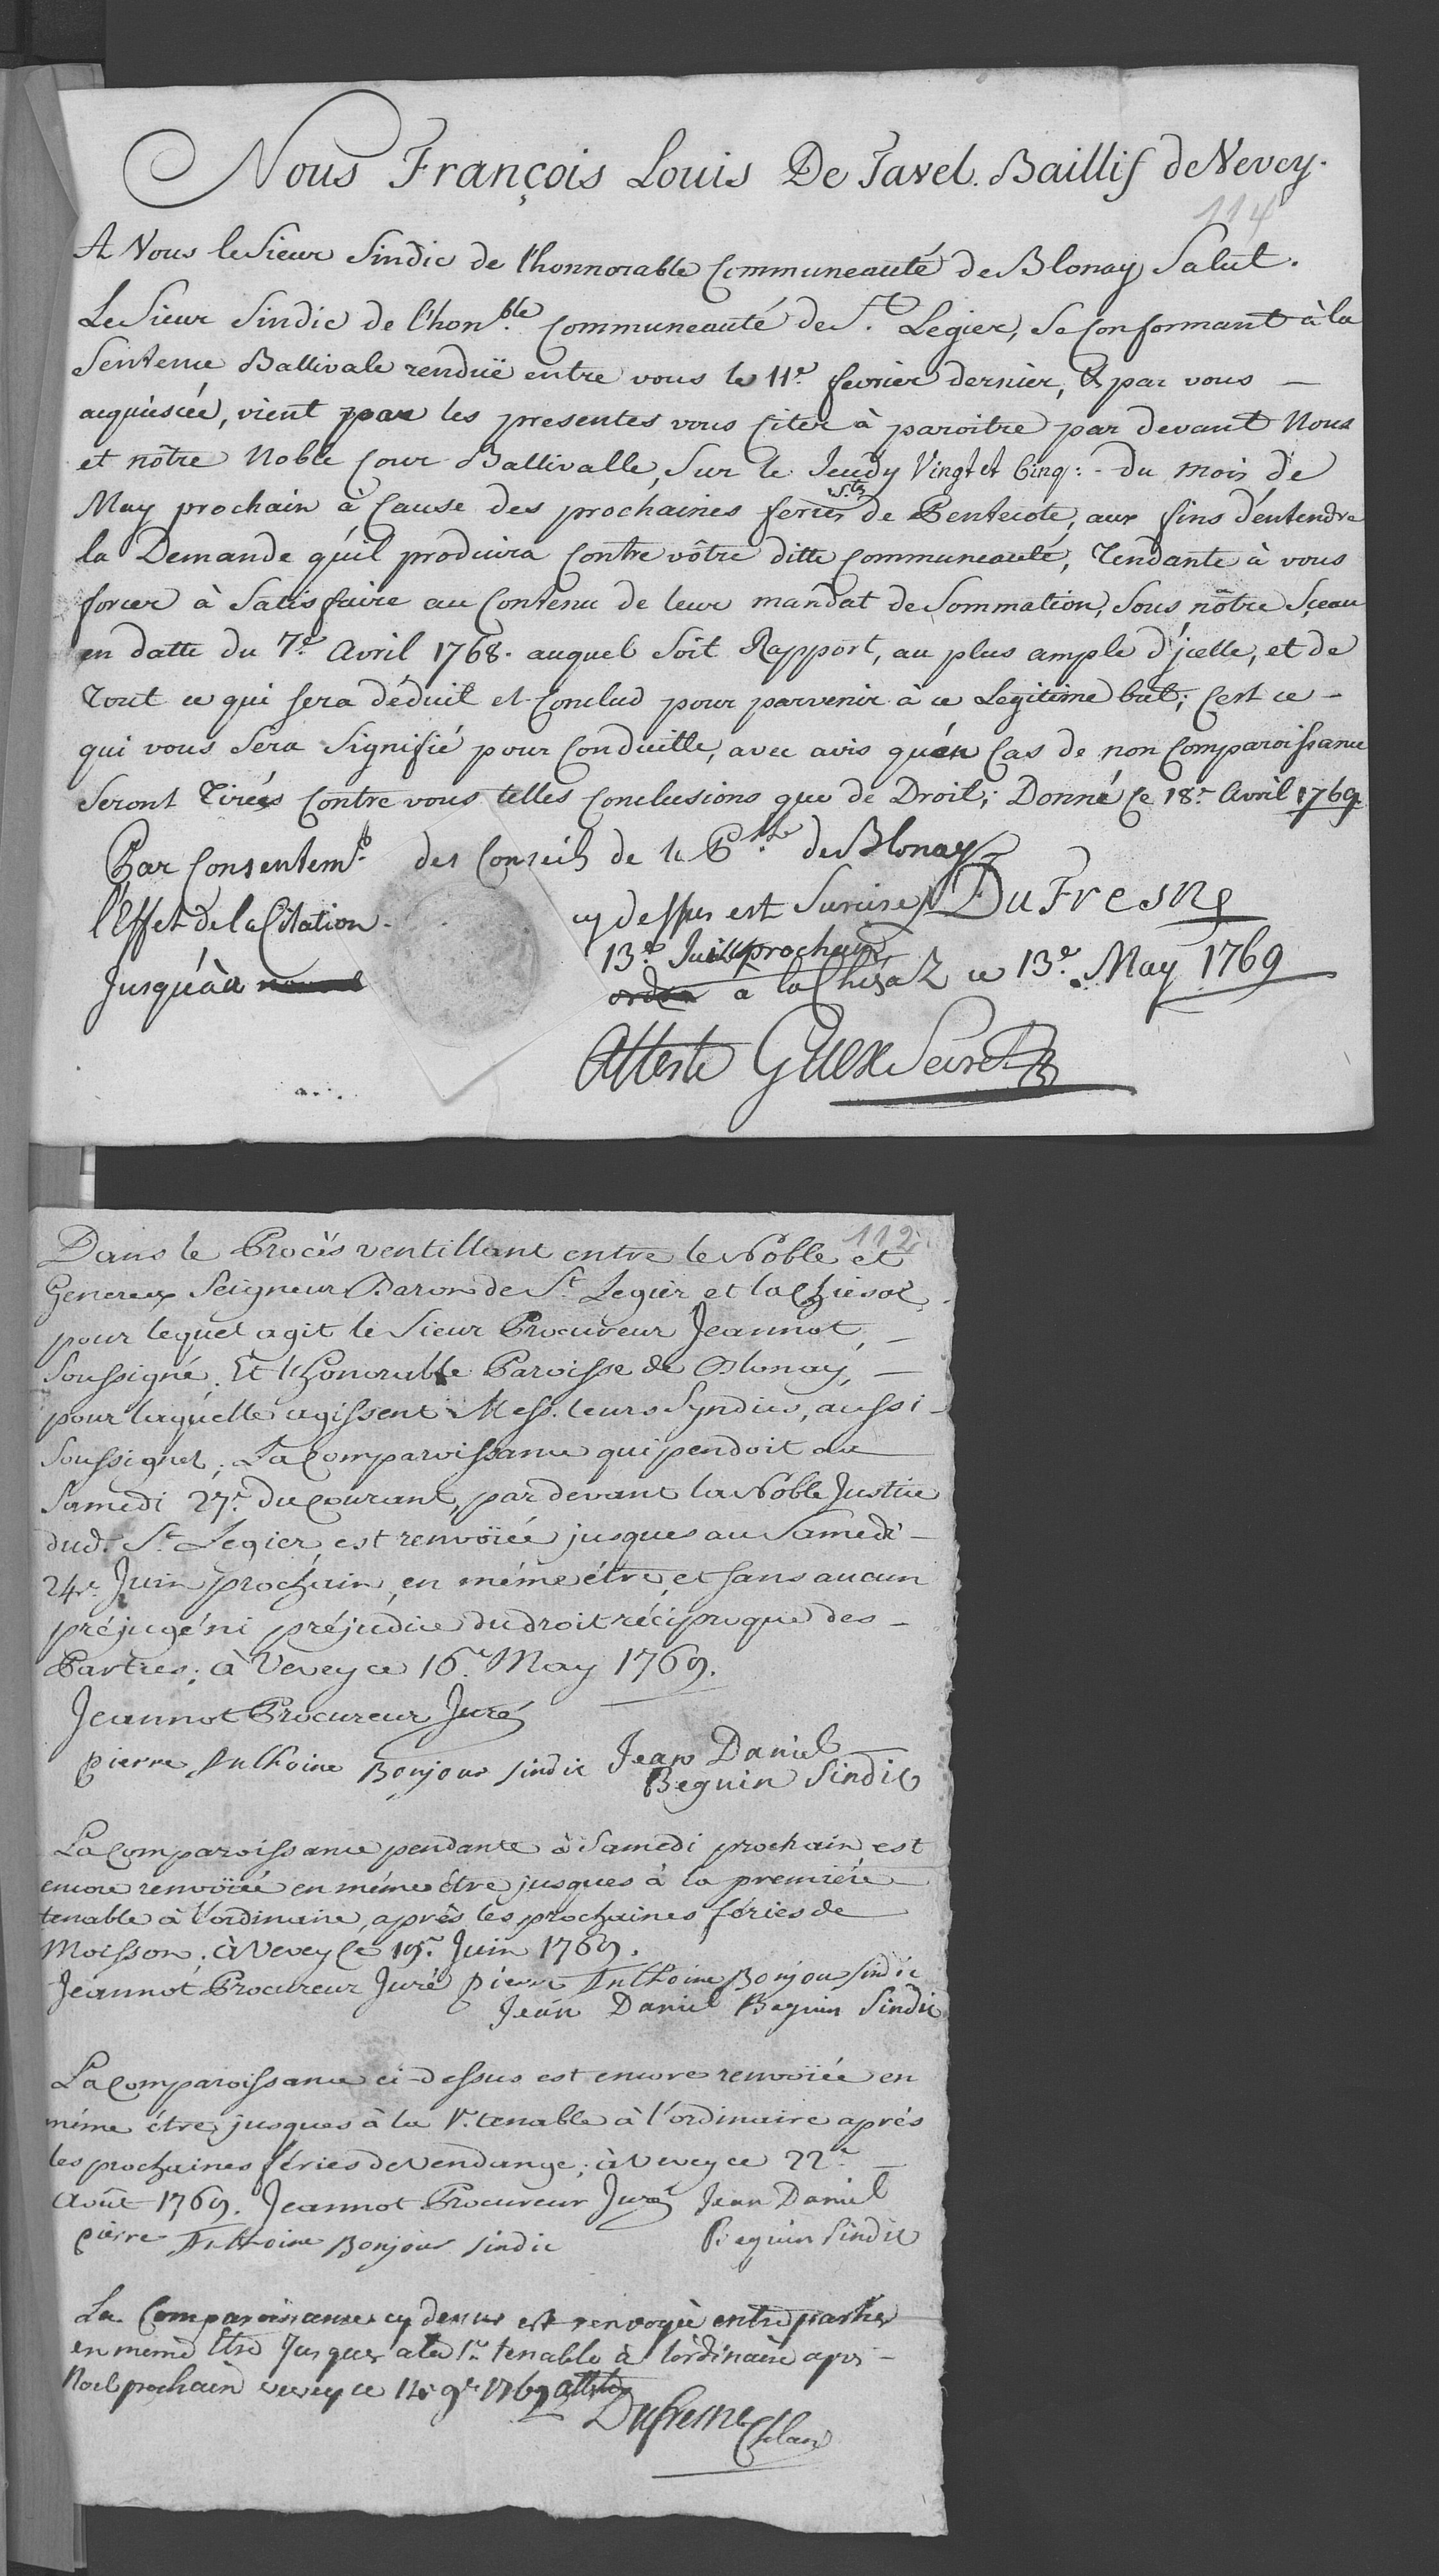 Nous François Louis De Tavel. Baillif de Vevey.
114
A Vous le Sieur Sindic de l'honnorable Communeauté de Blonay Salut.
Le Sieur Sindic de l'hon.ble Communeauté de S.t Legier, se Conformant à la
Sentence Ballivale renduë entre vous le 11.e fevrier dernier, & par vous —
acquiescée, vient par les presentes vous Citer à paroitre par devant Nous
et nôtre Noble Cour Ballivalle, sur le Jeudy Vingt et Cinq: du mois de
May prochain à Cause des prochaines feries S.tes de Pentecote, aux fins d'entendre
la Demande qu'il produira Contre vôtre ditte Communeauté, Tendante à vous
forcer à Satisfaire au Contenu de leur mandat de Sommation, Sous nôtre Sçeau
en datte du 7.e Avril 1768. auquel Soit Rapport, au plus ample d'jcelle, et de
Tout ce qui sera déduit et Conclud pour parvenir à ce Legitime but; C'est ce —
qui vous Sera Signifié pour Conduitte, avec avis qu'en Cas de non Comparoissance
Seront Tirées Contre vous telles Conclusions que de Droit; Donné Ce 18.e Avril 1769
Par Consentem.t des Conseils de la P.sse de Blonay
l'Effet de la Citation cy dessus est Surcise DuFresne
Jusqu'à 13.e prochain
a la Chiesaz ce 13.e May 1769
Atteste Guex Secret.
112
Dans le Procès ventillant entre le Noble et
Genereux Seigneur Baron de S.t Legier et la Chiesaz,
pour lequel agit le Sieur Procureur Jeannot, —
Soussigné. Et l'Honorable Paroisse de Blonay, —
pour laquelle agissent Mess. leurs Syndics, aussi —
Soussignés, La Comparoissance qui pendoit au
Samedi 27.e du Courant, par devant la Noble Justice
dud. S.t Legier, est renvoïée jusques au Samedi —
24.e Juin prochain, en même être, et sans aucun
préjugé ni préjudice du droit réciproque des —
Parties; à Vevey ce 16.e May 1769.
Jeannot Procureur Juré
pierre Anthoine Bonjour sindic Jean Daniel
Beguin Sindic
La Comparoissance pendante à Samedi prochain, est
encore renvoïée en même être jusques à la premiére
tenable à l'ordinaire, après les prochaines féries de
Moisson; à Vevey Ce 19.e Juin 1769.
Jeannot Procureur Juré pierre Anthoine Bonjour sindic
Jean Daniel Beguin Sindic
La Comparoissance ci-dessus est encore renvoïée en
même être, jusques à la 1.e tenable à l'ordinaire après
les prochaines féries de Vendange; à Vevey ce 22.e
Août 1769. Jeannot Procureur Juré Jean Daniel
pierre Anthoine Bonjour sindic Beguin Sindic
La Comparoissance cy dessus est renvoyée entre parties
en meme Etre Jusques a la 1.e tenable à l'ordinaire apr's —
Noel prochain vevey ce 14 9.e 1769 atteste
Dufresne